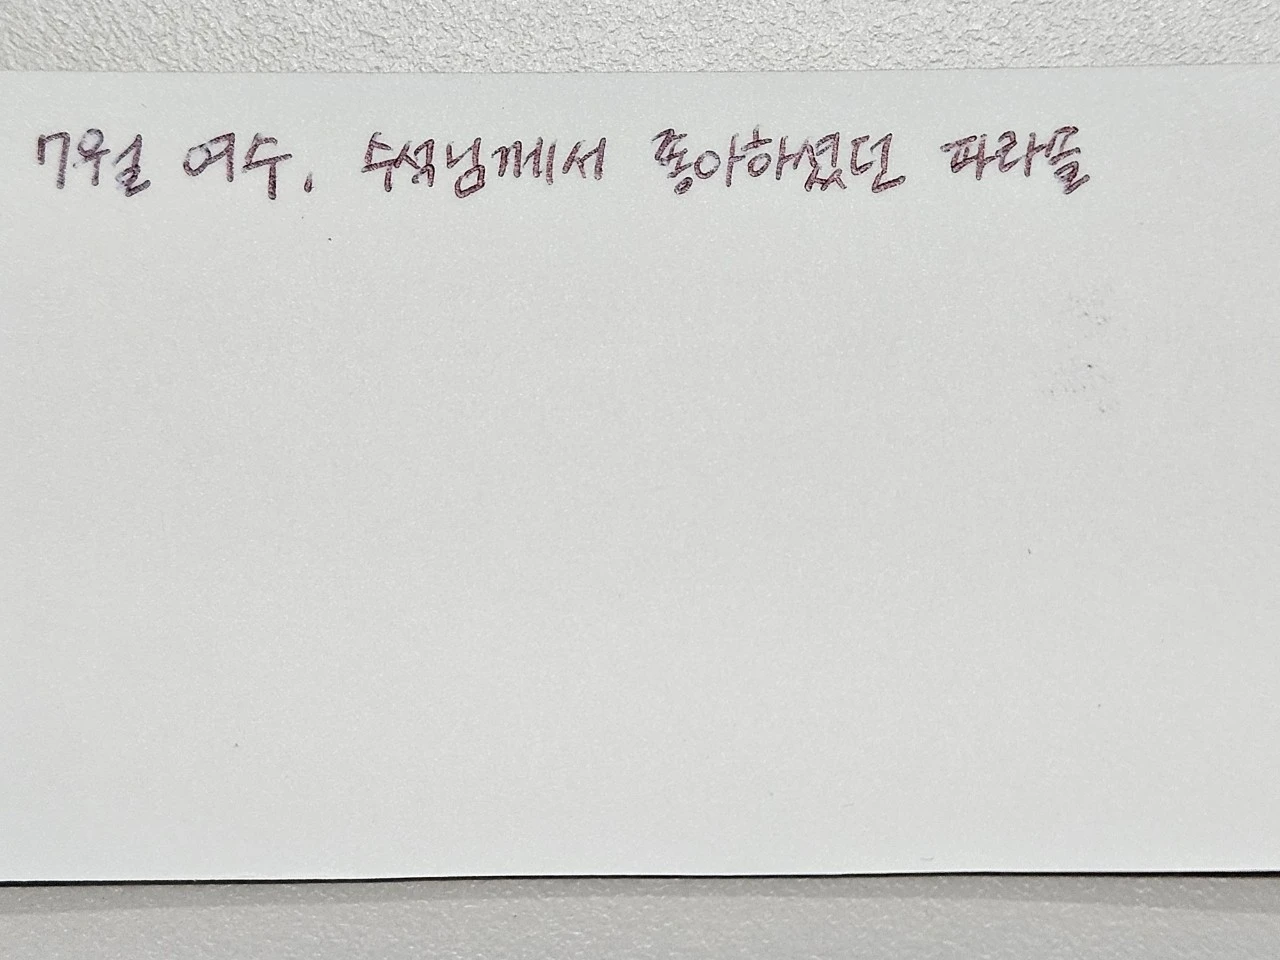 7월 여수, 수석님께서 좋아하셨던 파라뜰